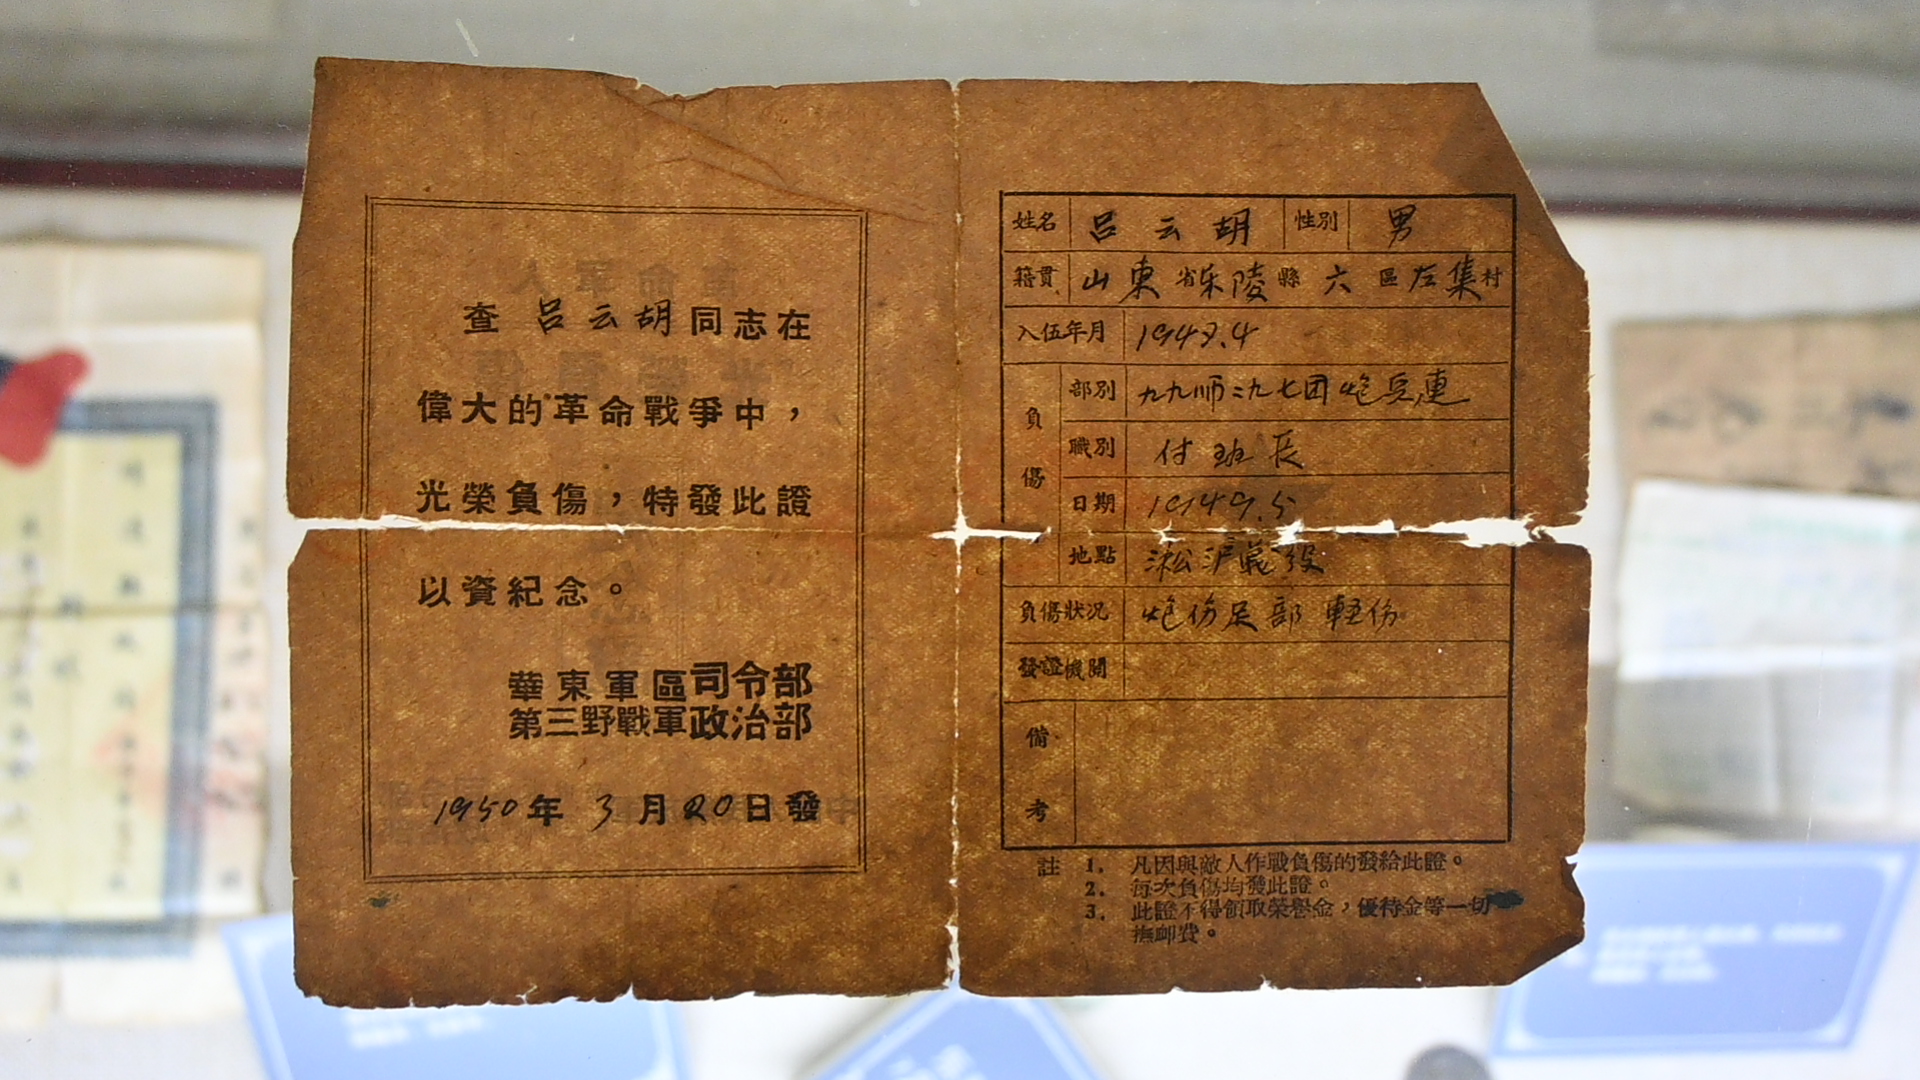 查 吕云胡 同志在
偉大的革命戰爭中，
光榮負傷，特發此證
以資紀念。
華東軍區司令部
第三野戰軍政治部
1950年 3月20日發
姓名 吕云胡 性别 男
籍貫 山東省乐陵縣 六 區左集村
入伍年月
負傷
部别 九九师二九七团炮兵連
職别 付班长
日期 1949.5
地點 淞沪战役
負傷狀况 炮伤足部 軽伤
發證機関
備考
註 1. 凡因與敵人作戰負傷的發給此證。
2. 每次負傷均發此證。
3. 此證不得領取榮譽金，優待金等一切
撫卹費。